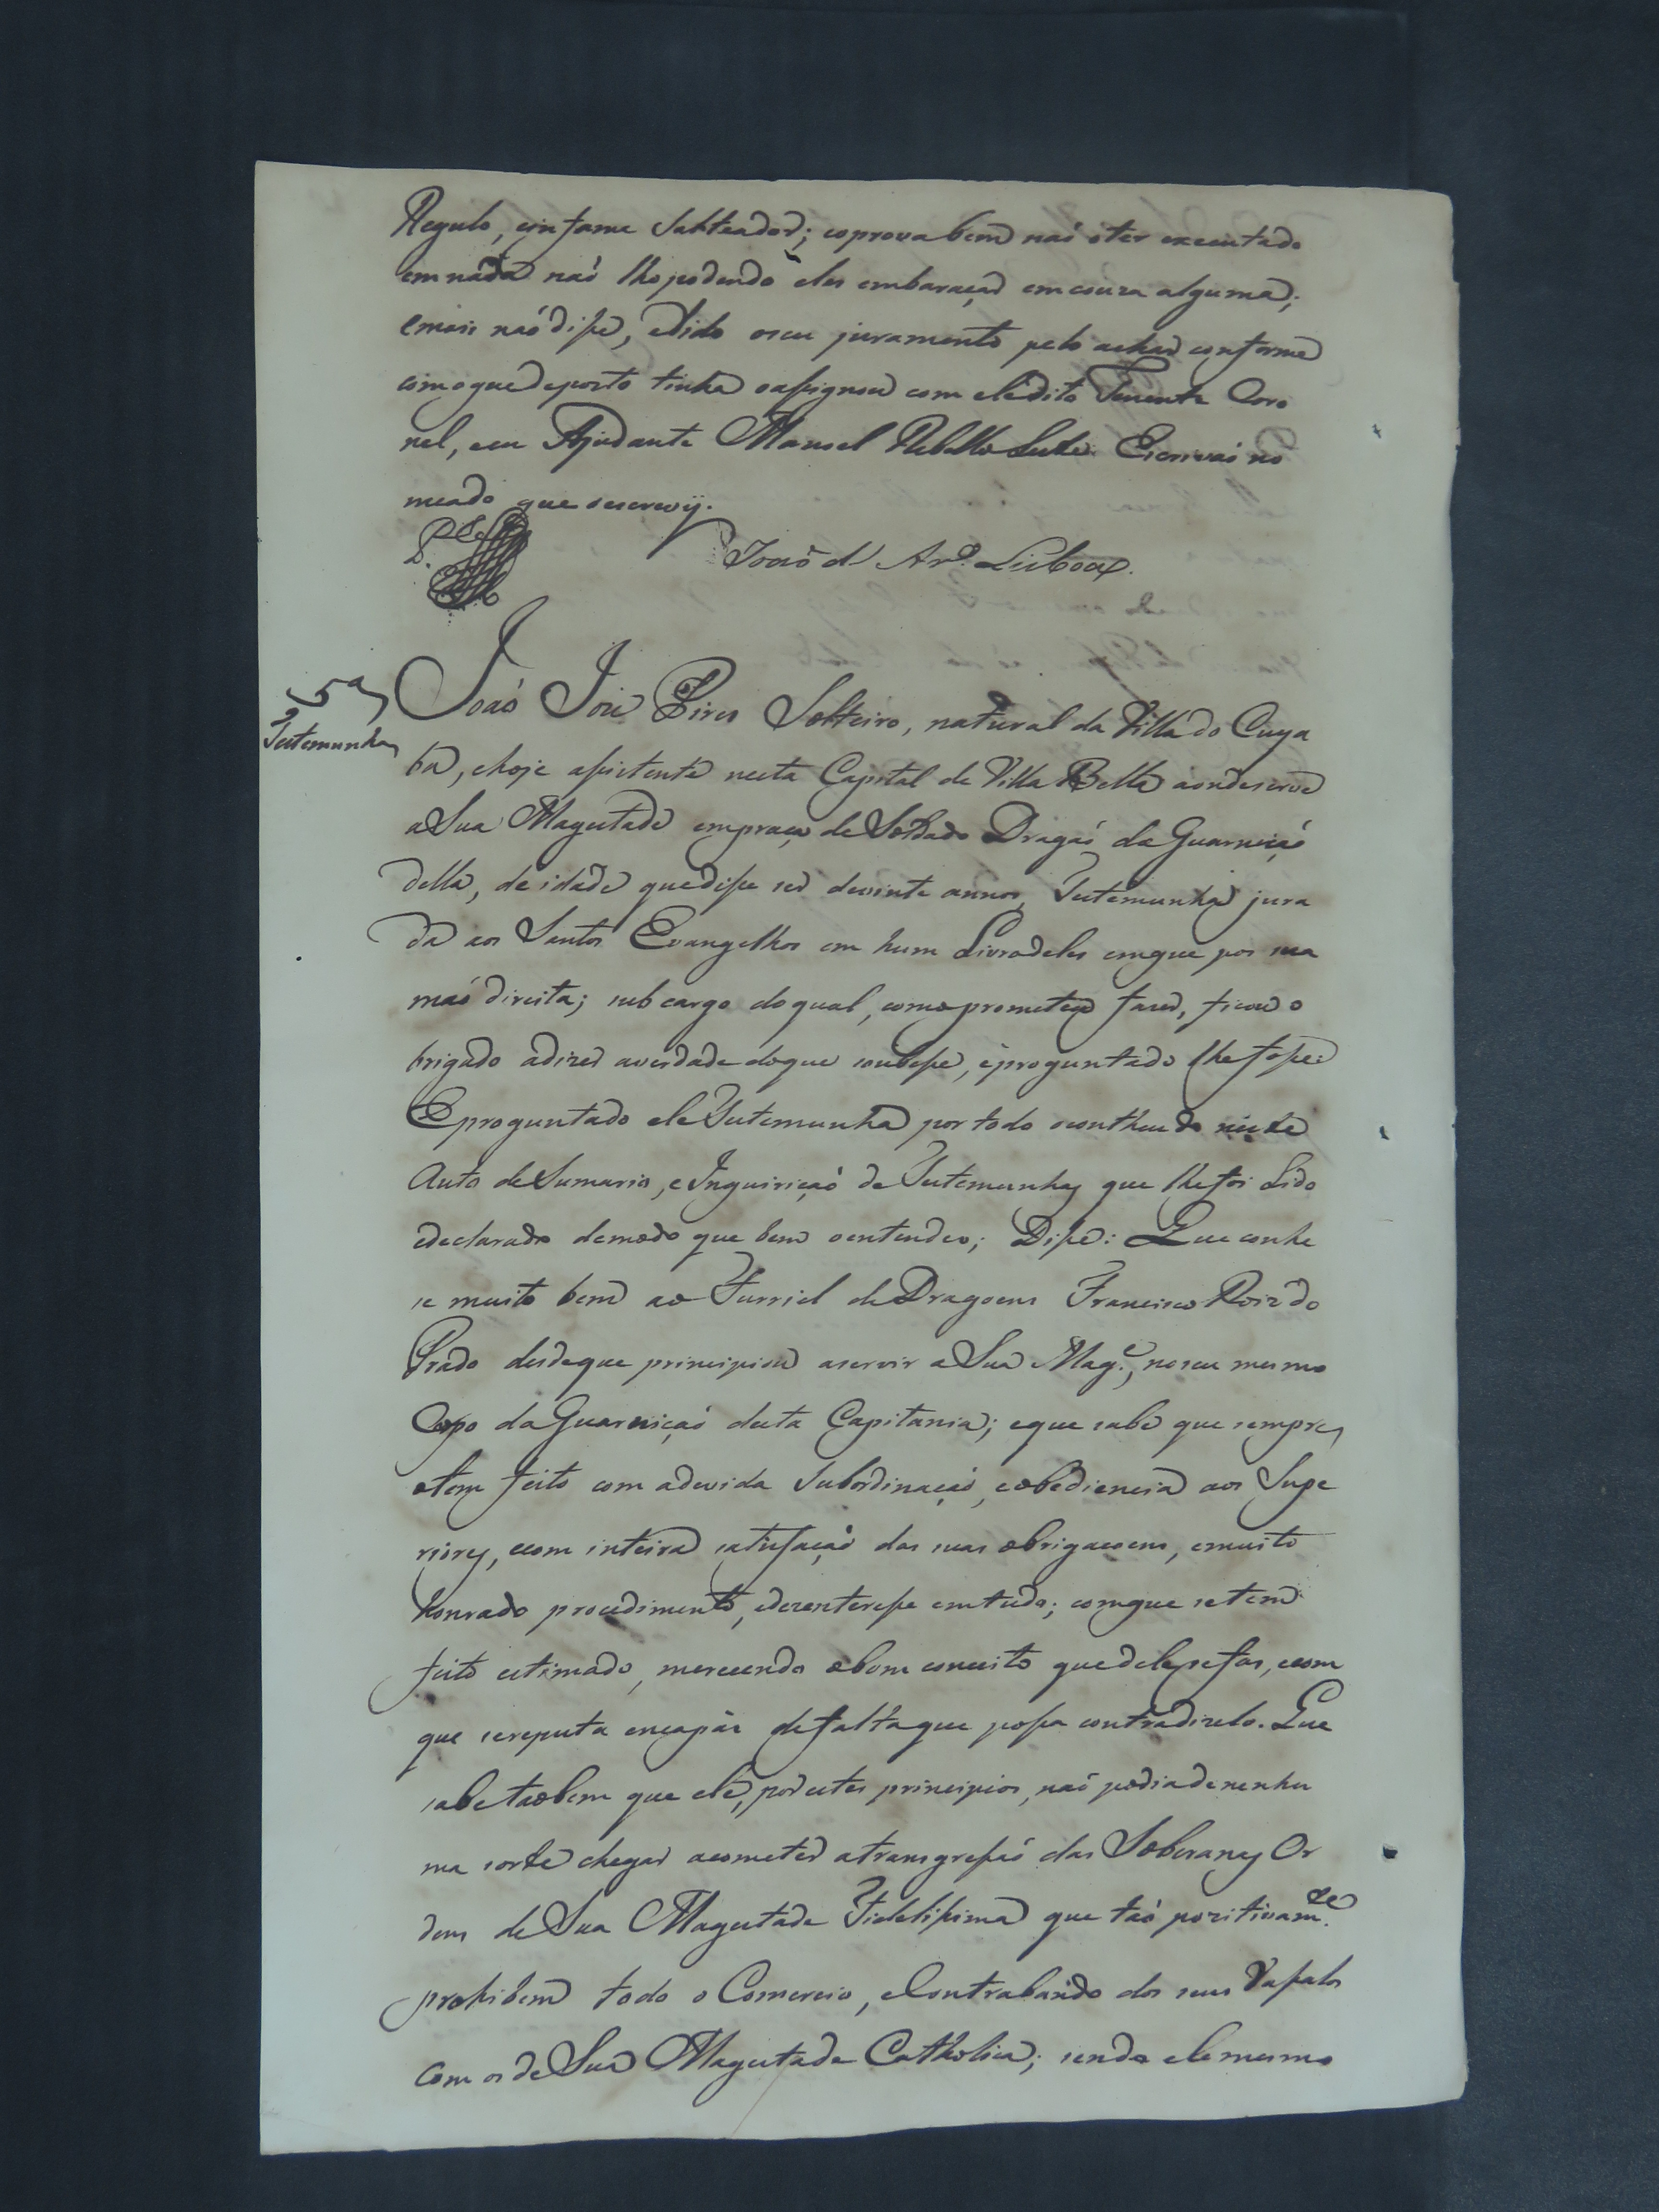 Regulo, e infame Salteador; e o prova bem naó o ter executado
em nada naó lho podendo eles embaraçar em couza alguma;
e mais naó disse, e lido o seu juramento pelo achar conforme
com o que deposto tinha o assignou com ele dito Tenente Coro
nel, e eu Ajudante Manoel Rebello Leite Escrivaó no
meado que o escrevy.
Joaõ d' Arº. Lisboa.
5ª
Testemunha
Joaó Joze Pires Solteiro, natural da Villa do Cuya
ba, e hoje assistente nesta Capital de Villa Bella aonde serve
a Sua Magestade em praça de Soldado Dragaó da Guarniçaó
della, de idade que disse ser de vinte annos, Testemunha jura
da aos Santos Evangelhos em hum Livro deles em que pos sua
maó direita; sub cargo do qual, como prometeo fazer, ficou o
brigado a dizer a verdade do que soubesse, e proguntado lhe fosse:
E proguntado ele Testemunha por todo o contheudo neste
Auto de Sumario, e Inquiriçaó de Testemunhas que lhe foi Lido
e declarado de modo que bem o entendeo; Disse: Que conhe
se muito bem ao Furriel de Dragoens Francisco Roiz do
Prado desde que principiou a servir a Sua Mag.e, no seu mesmo
Corpo da Guarniçaó desta Capitania; e que sabe que sempre
o tem feito com a devida Subordinaçaó, e obediencia aos Supe
riores, e com inteira satisfaçaó das suas obrigacoens, e muito
honrado procedimento, e dezenteresse em tudo; com que se tem
feito estimado, merecendo o bom conceito que dele se fas, e com
que se reputa encapás de falta que possa contradizelo. Que
sabe taobem que ele, por estes principios, naó podia de nenhu
ma sorte chegar a cometer a transgressaó das Soberanas Or
dens de Sua Magestade Fidelissima que taó pozitivam.te
prohibem todo o Comercio, e Contrabando dos seus Vassalos
com os de Sua Magestade Catholica; sendo ele mesmo